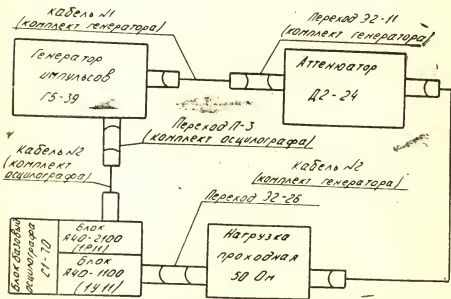 Кабель N1
(комплект генератора)
Переход Э2-11
(комплект генератора)
Генератор
импульсов
Г5-39
Аттенюатор
Д2-24
Переход П-3
(комплект осцилографа)
Кабель N2
(комплект
осцилографа)
Кабель N2
(комплект генератора)
Переход Э2-26
Блок базовый
осцилографа
С1-70
Блок
Я40-2100
(1Р11)
Блок
Я40-1100
(1У11)
Нагрузка
проходная
50 Ом